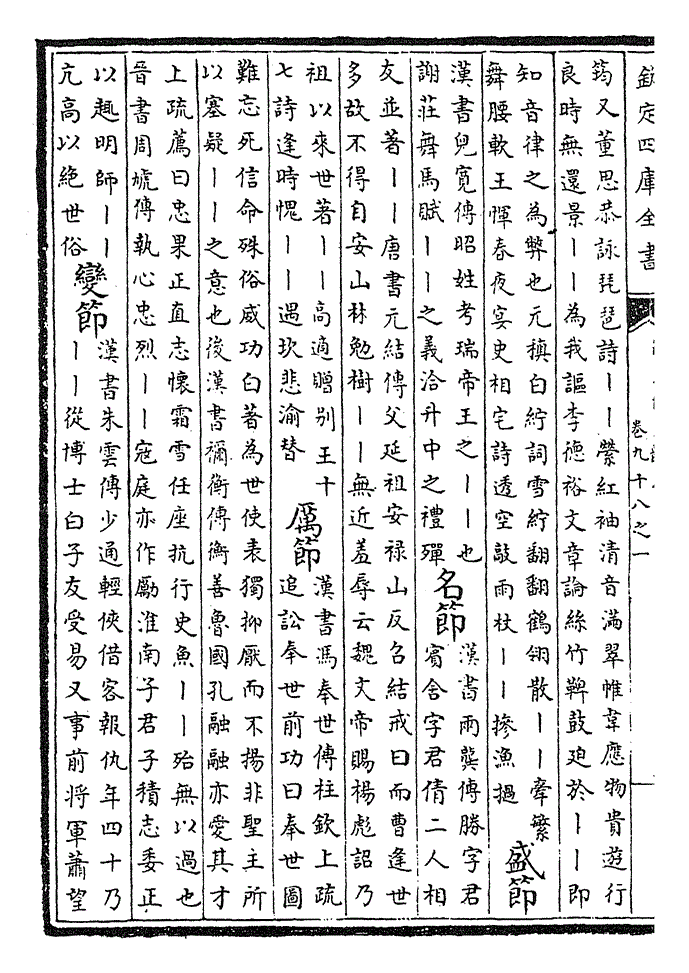 欽定四庫全書
卷九十八之一
筠又董思恭詠琵琶詩丨丨縈紅袖清音滿翠帷韋應物貴遊行
良時無還景丨丨為我謳李德裕文章論絲竹鞞鼓迫於丨丨即
知音律之為弊也元稹白紵詞雪紵翻翻鶴翎散丨丨牽繁
舞腰軟王惲春夜宴史相宅詩透空敲雨杖丨丨摻漁撾
盛節
漢書兒寬傳昭姓考瑞帝王之丨丨也
謝莊舞馬賦丨丨之義洽升中之禮殫
名節
漢書兩龔傳勝字君
賓舍字君倩二人相
友並著丨丨唐書元結傳父延祖安祿山反召結戒曰而曹逢世
多故不得自安山林勉樹丨丨無近羞辱云魏文帝賜楊彪詔乃
祖以來世著丨丨高適贈別王十
七詩逢時愧丨丨遇坎悲渝替
厲節
漢書馮奉世傳杜欽上疏
追訟奉世前功曰奉世圖
難忘死信命殊俗威功白著為世使表獨抑厭而不揚非聖主所
以塞疑丨丨之意也後漢書禰衡傳衡善魯國孔融融亦愛其才
上疏薦曰忠果正直志懷霜雪任座抗行史魚丨丨殆無以過也
晉書周虓傳執心忠烈丨丨寇庭亦作勵淮南子君子積志委正
以趣明師丨丨
亢高以絕世俗
變節
漢書朱雲傳少通輕俠借客報仇年四十乃
丨丨從博士白子友受易又事前將軍蕭望